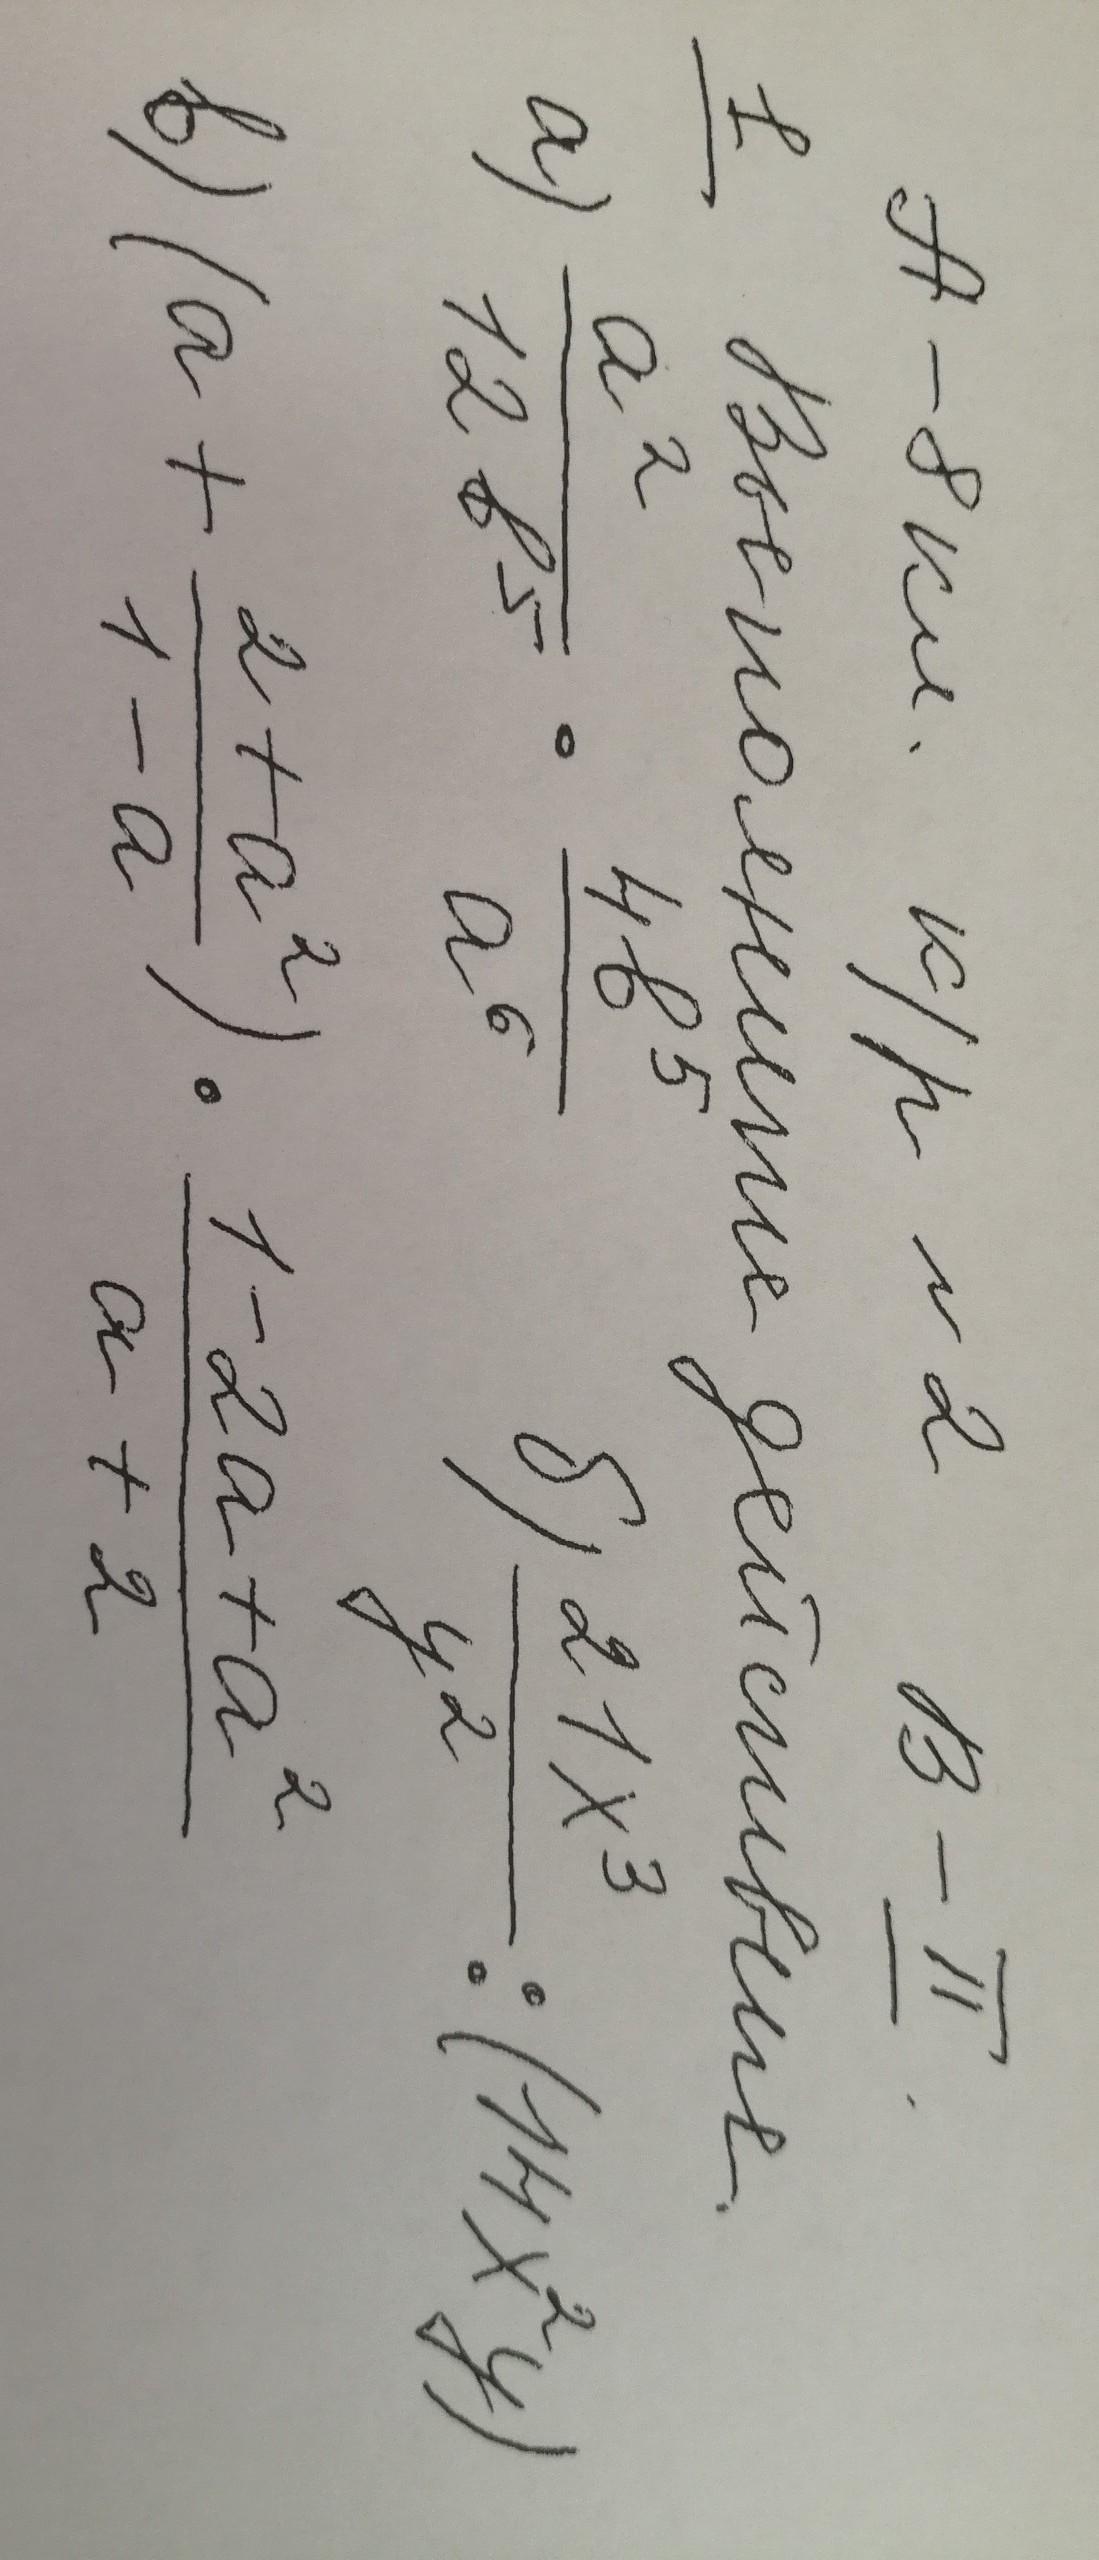 А-8кл. к/р n 2 В-II.
1 Выполнение действие.
а) a²/12b⁵ · 4b⁵/a⁶ б) 21x³/y² : (14x²y)
в) (a + 2+a²/1-a) · 1-2a+a²/a+2